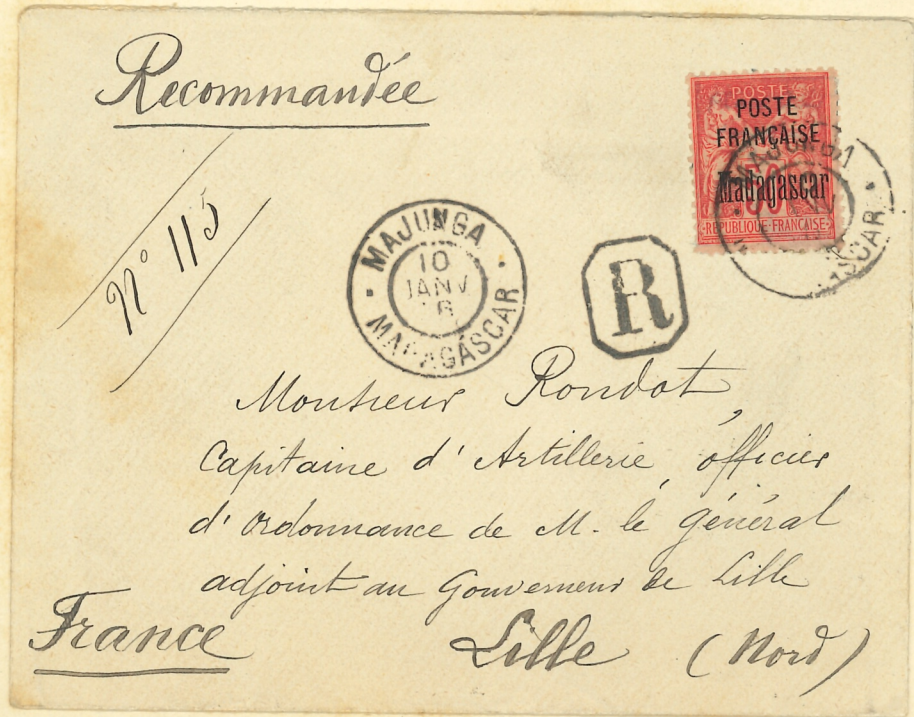 Recommandée
N° 115
POSTE
POSTE
FRANÇAISE
Madagascar
50
REPUBLIQUE FRANÇAISE
MAJUNGA
10
JANV
MADAGASCAR
R
Monsieur Rondot
Capitaine d'Artillerie, officier
d'ordonnance de M. le général
adjoint au Gouverneur de Lille
Lille (Nord)
France